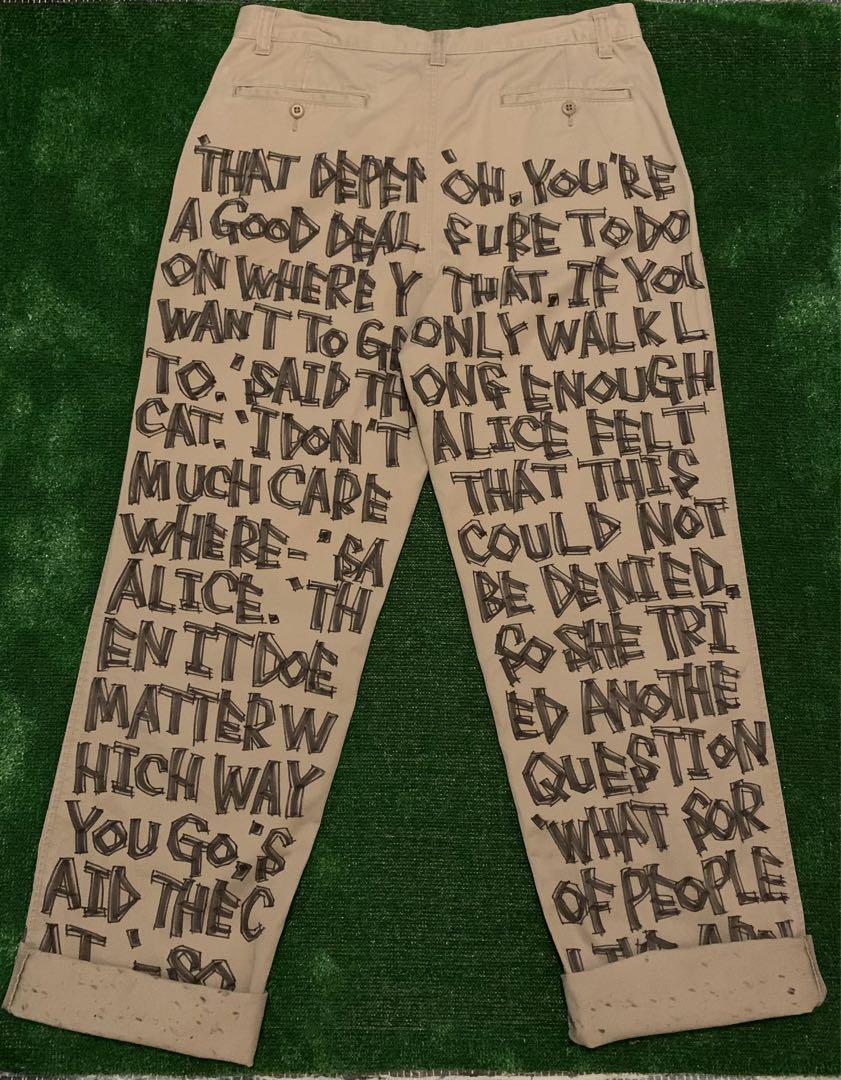 'THAT DEPEN
A GOOD DEAL
ON WHERE Y
WANT TO GO
TO.' SAID TH
CAT. 'I DON'T
MUCH CARE
WHERE-' SA
ALICE. 'TH
EN IT DOE
MATTER W
HICH WAY
YOU GO,'S
AID THE C
AT. '-SO
'OH, YOU'RE
SURE TO DO
THAT, IF YOU
ONLY WALK L
ONG ENOUGH
ALICE FELT
THAT THIS
COULD NOT
BE DENIED,
SO SHE TRI
ED ANOTHE
QUESTION
'WHAT SOR
OF PEOPLE